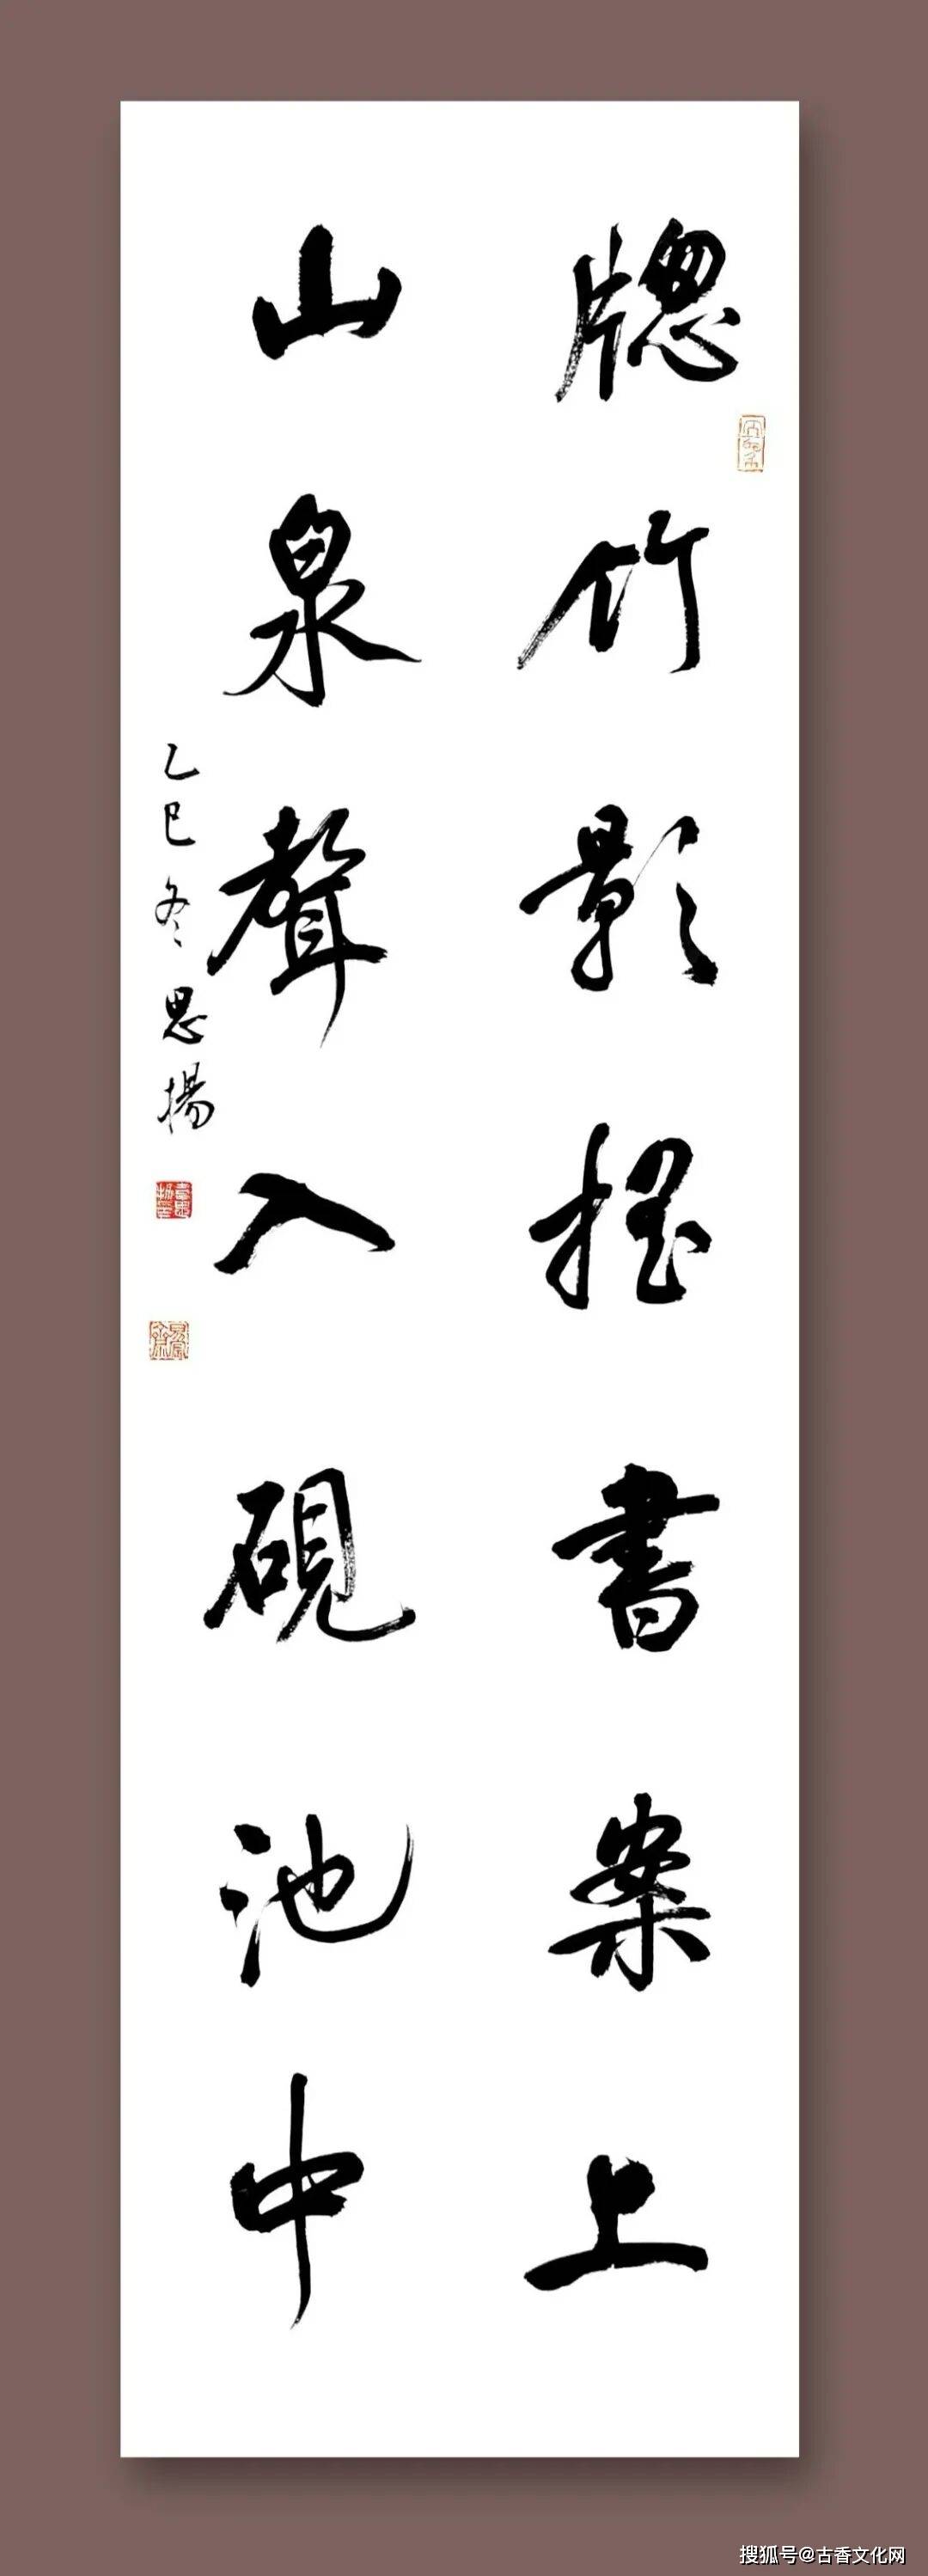 牕竹影摇書案上
山泉聲入硯池中
乙巳冬思揚
搜狐号@古香文化网